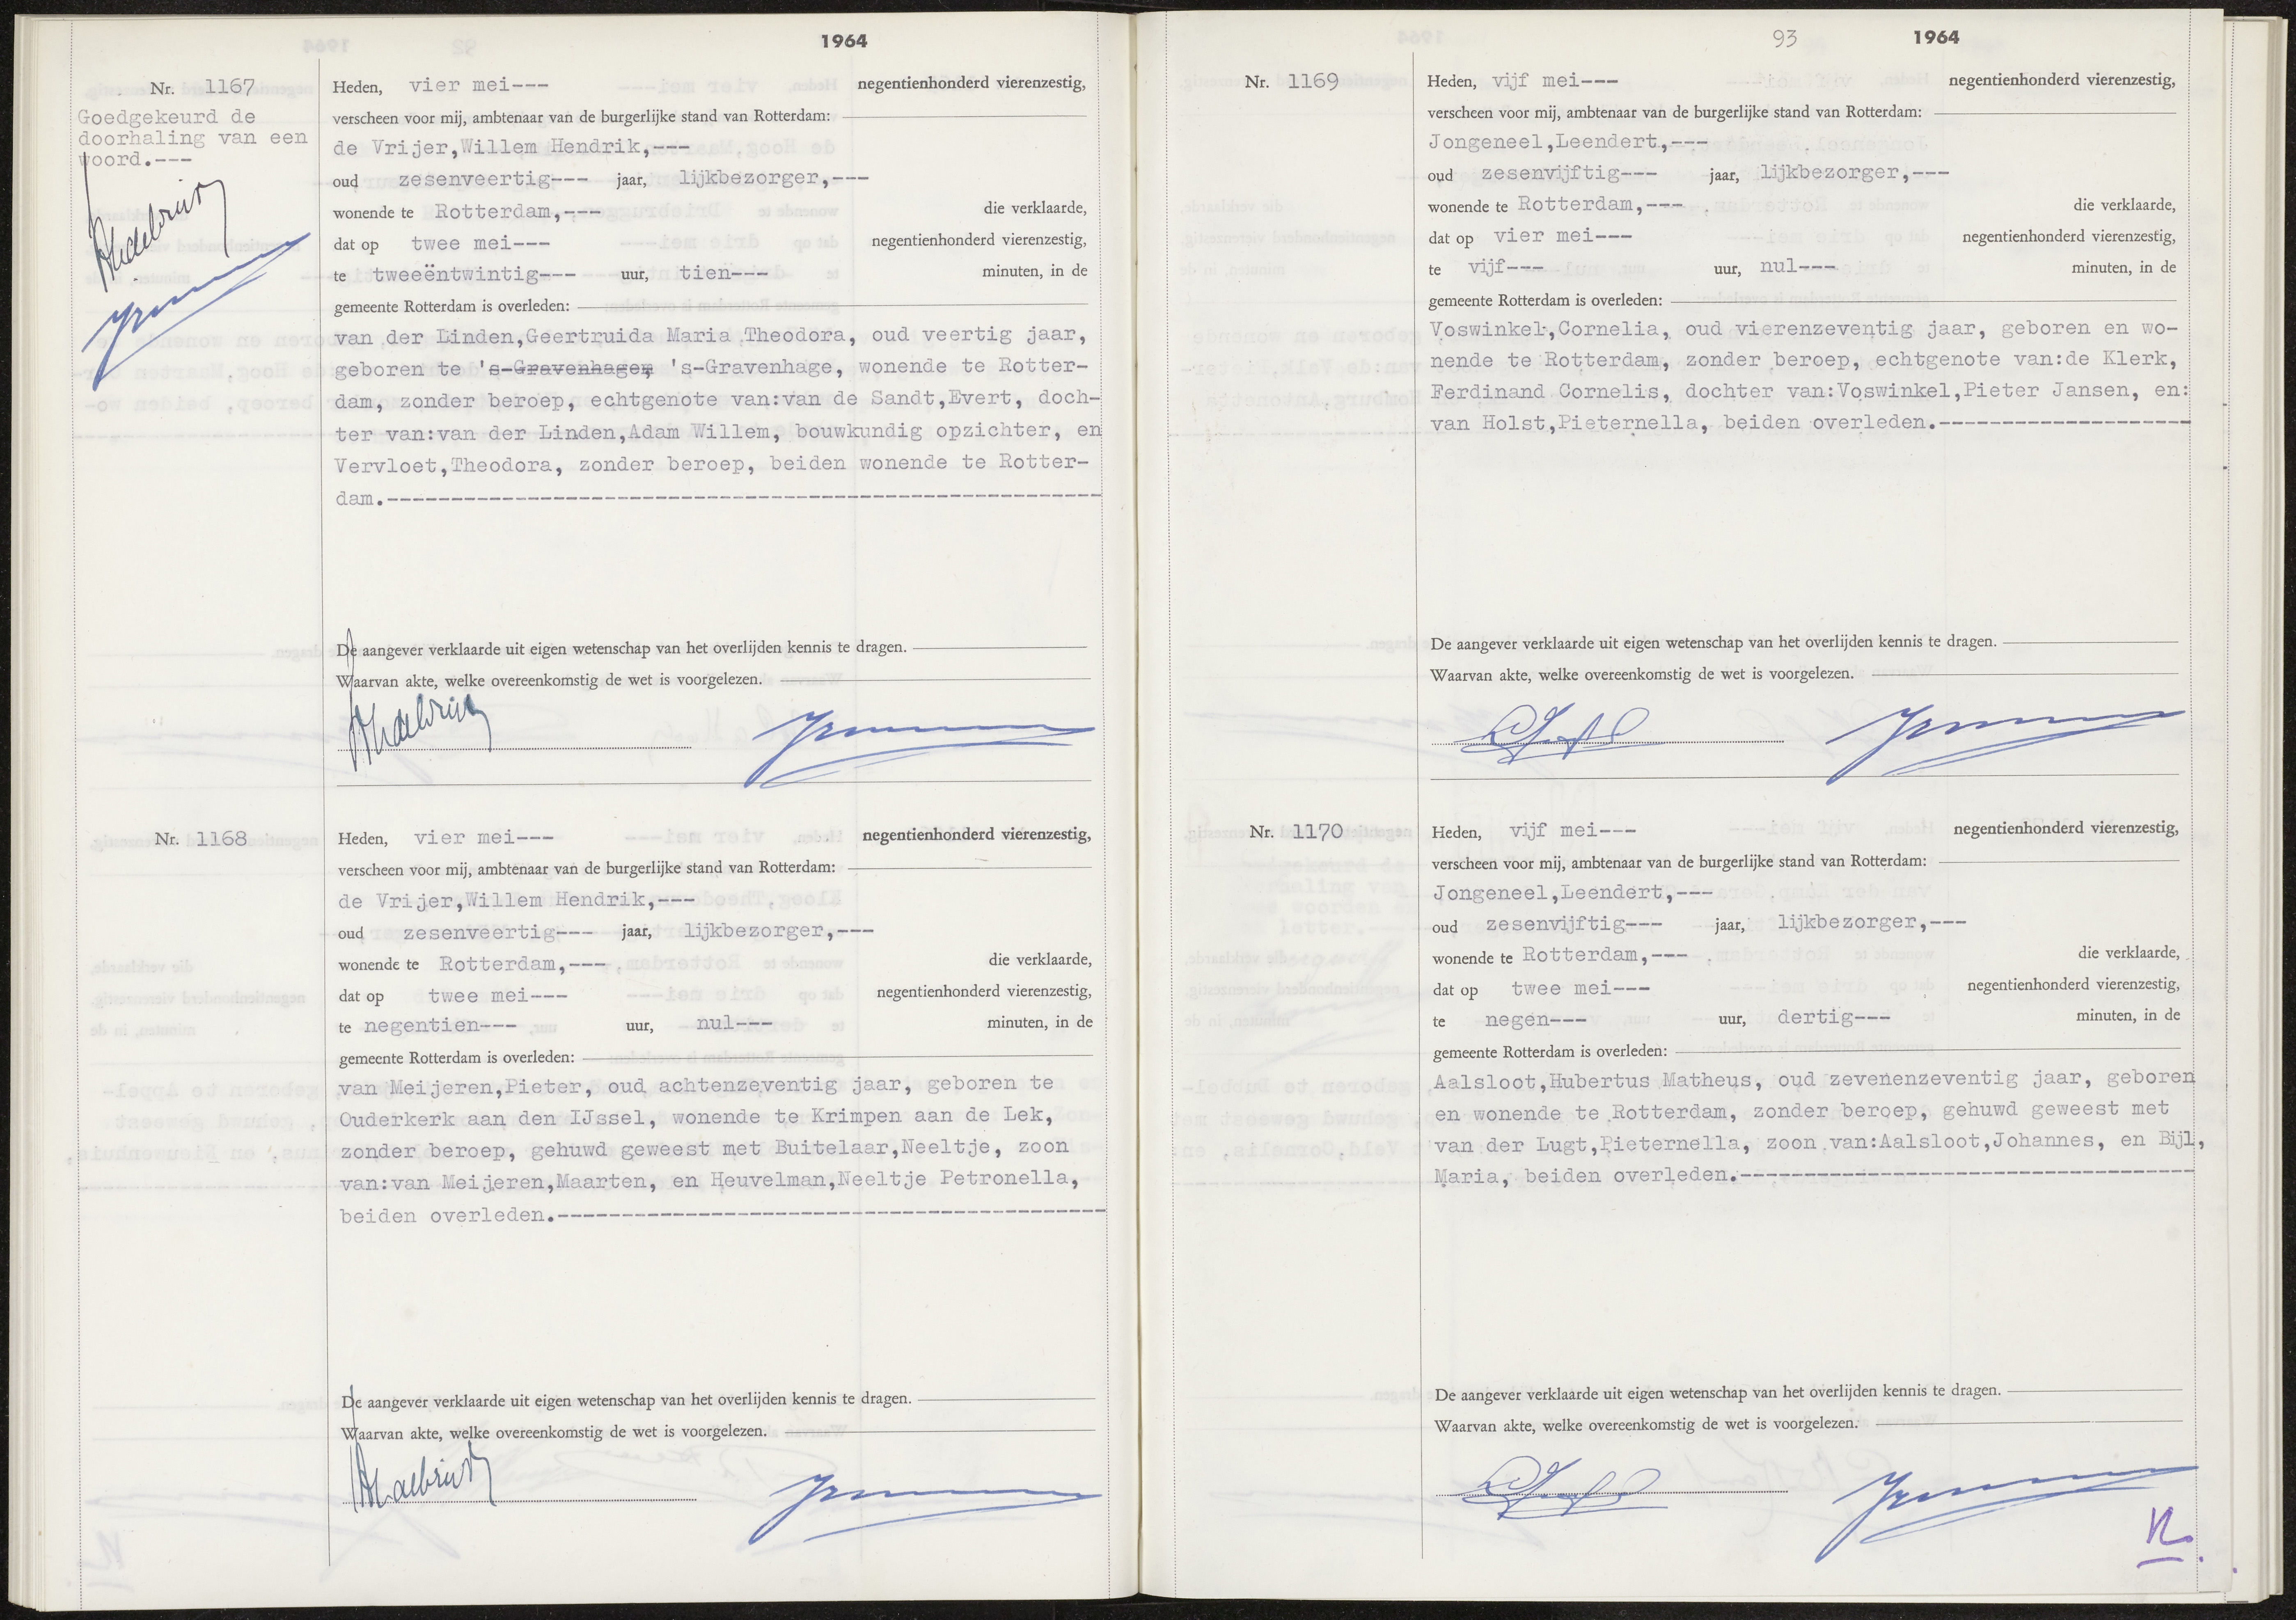 1964
Nr. 1167
Goedgekeurd de
doorhaling van een
woord.---
Heden, vier mei--- negentienhonderd vierenzestig,
verscheen voor mij, ambtenaar van de burgerlijke stand van Rotterdam:
de Vrijer,Willem Hendrik,---
oud zesenveertig--- jaar, lijkbezorger,---
wonende te Rotterdam,--- die verklaarde,
dat op twee mei--- negentienhonderd vierenzestig,
te tweeëntwintig--- uur, tien--- minuten, in de
gemeente Rotterdam is overleden:
van der Linden,Geertruida Maria Theodora, oud veertig jaar,
geboren te 's-Gravenhage, 's-Gravenhage, wonende te Rotter-
dam, zonder beroep, echtgenote van:van de Sandt,Evert, doch-
ter van:van der Linden,Adam Willem, bouwkundig opzichter, en
Vervloet,Theodora, zonder beroep, beiden wonende te Rotter-
dam.---
De aangever verklaarde uit eigen wetenschap van het overlijden kennis te dragen.
Waarvan akte, welke overeenkomstig de wet is voorgelezen.
Nr. 1168
Heden, vier mei--- negentienhonderd vierenzestig,
verscheen voor mij, ambtenaar van de burgerlijke stand van Rotterdam:
de Vrijer,Willem Hendrik,---
oud zesenveertig--- jaar, lijkbezorger,---
wonende te Rotterdam,--- die verklaarde,
dat op twee mei--- negentienhonderd vierenzestig,
te negentien--- uur, nul--- minuten, in de
gemeente Rotterdam is overleden:
van Meijeren,Pieter, oud achtenzeventig jaar, geboren te
Ouderkerk aan den IJssel, wonende te Krimpen aan de Lek,
zonder beroep, gehuwd geweest met Buitelaar,Neeltje, zoon
van:van Meijeren,Maarten, en Heuvelman,Neeltje Petronella,
beiden overleden.---
De aangever verklaarde uit eigen wetenschap van het overlijden kennis te dragen.
Waarvan akte, welke overeenkomstig de wet is voorgelezen.
93 1964
Nr. 1169
Heden, vijf mei--- negentienhonderd vierenzestig,
verscheen voor mij, ambtenaar van de burgerlijke stand van Rotterdam:
Jongeneel,Leendert,---
oud zesenvijftig--- jaar, lijkbezorger,---
wonende te Rotterdam,--- die verklaarde,
dat op vier mei--- negentienhonderd vierenzestig,
te vijf--- uur, nul--- minuten, in de
gemeente Rotterdam is overleden:
Voswinkel,Cornelia, oud vierenzeventig jaar, geboren en wo-
nende te Rotterdam, zonder beroep, echtgenote van:de Klerk,
Ferdinand Cornelis, dochter van:Voswinkel,Pieter Jansen, en:
van Holst,Pieternella, beiden overleden.---
De aangever verklaarde uit eigen wetenschap van het overlijden kennis te dragen.
Waarvan akte, welke overeenkomstig de wet is voorgelezen.
Nr. 1170
Heden, vijf mei--- negentienhonderd vierenzestig,
verscheen voor mij, ambtenaar van de burgerlijke stand van Rotterdam:
Jongeneel,Leendert,---
oud zesenvijftig--- jaar, lijkbezorger,---
wonende te Rotterdam,--- die verklaarde,
dat op twee mei--- negentienhonderd vierenzestig,
te negen--- uur, dertig--- minuten, in de
gemeente Rotterdam is overleden:
Aalsloot,Hubertus Matheus, oud zevenenzeventig jaar, geboren
en wonende te Rotterdam, zonder beroep, gehuwd geweest met
van der Lugt,Pieternella, zoon van:Aalsloot,Johannes, en Bijl,
Maria, beiden overleden.---
De aangever verklaarde uit eigen wetenschap van het overlijden kennis te dragen.
Waarvan akte, welke overeenkomstig de wet is voorgelezen.